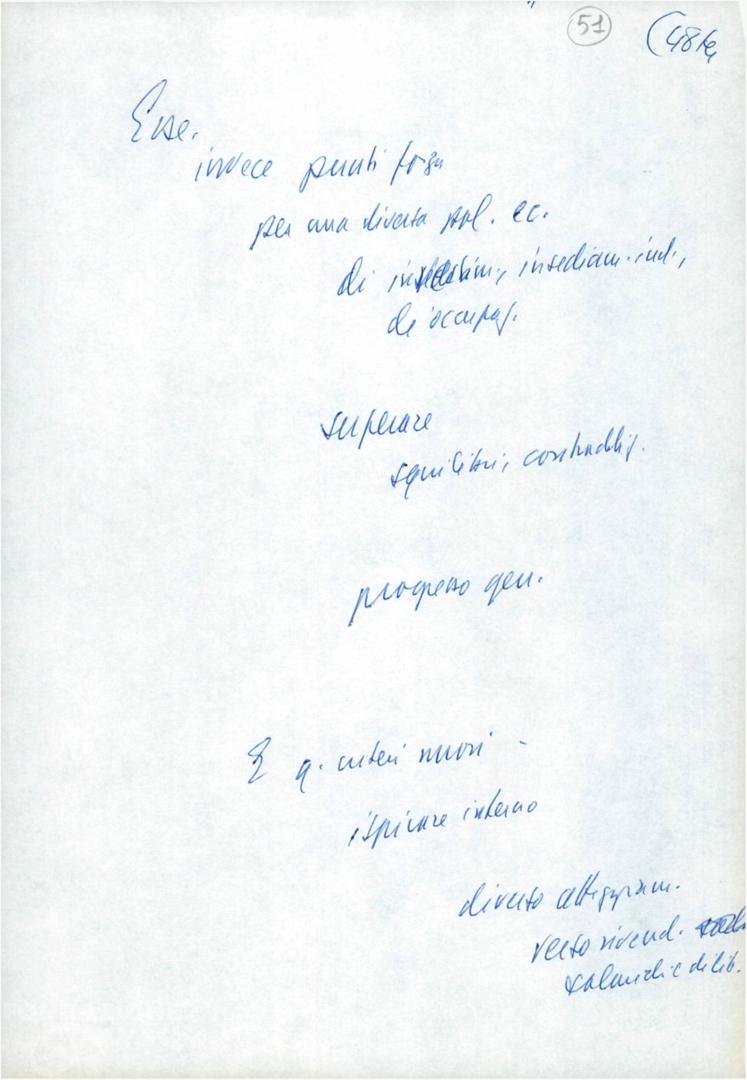 51 (48 bis
Esse.
invece punti forza
per una diversa pol. ec.
di insediam. ind.,
di occupaz.
superare
squilibri, contraddiz.
progresso gen.
E q. criteri nuovi -
ispirare interno
diverso atteggiam.
verso rivend.
salariali e di lib.